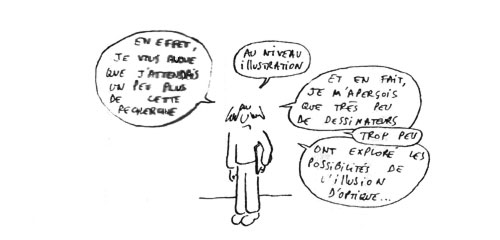 EN EFFET,
JE VOUS AVOUE
QUE J'ATTENDAIS
UN PEU PLUS
DE CETTE
RECHERCHE
AU NIVEAU
illUSTRATION
ET EN FAIT,
JE M'APERÇOIS
QUE TRÈS PEU
DE DESSINATEURS
TROP PEU
ONT EXPLORÉ LES
POSSIBILITÉS DE
L'ILLUSION
D'OPTIQUE...